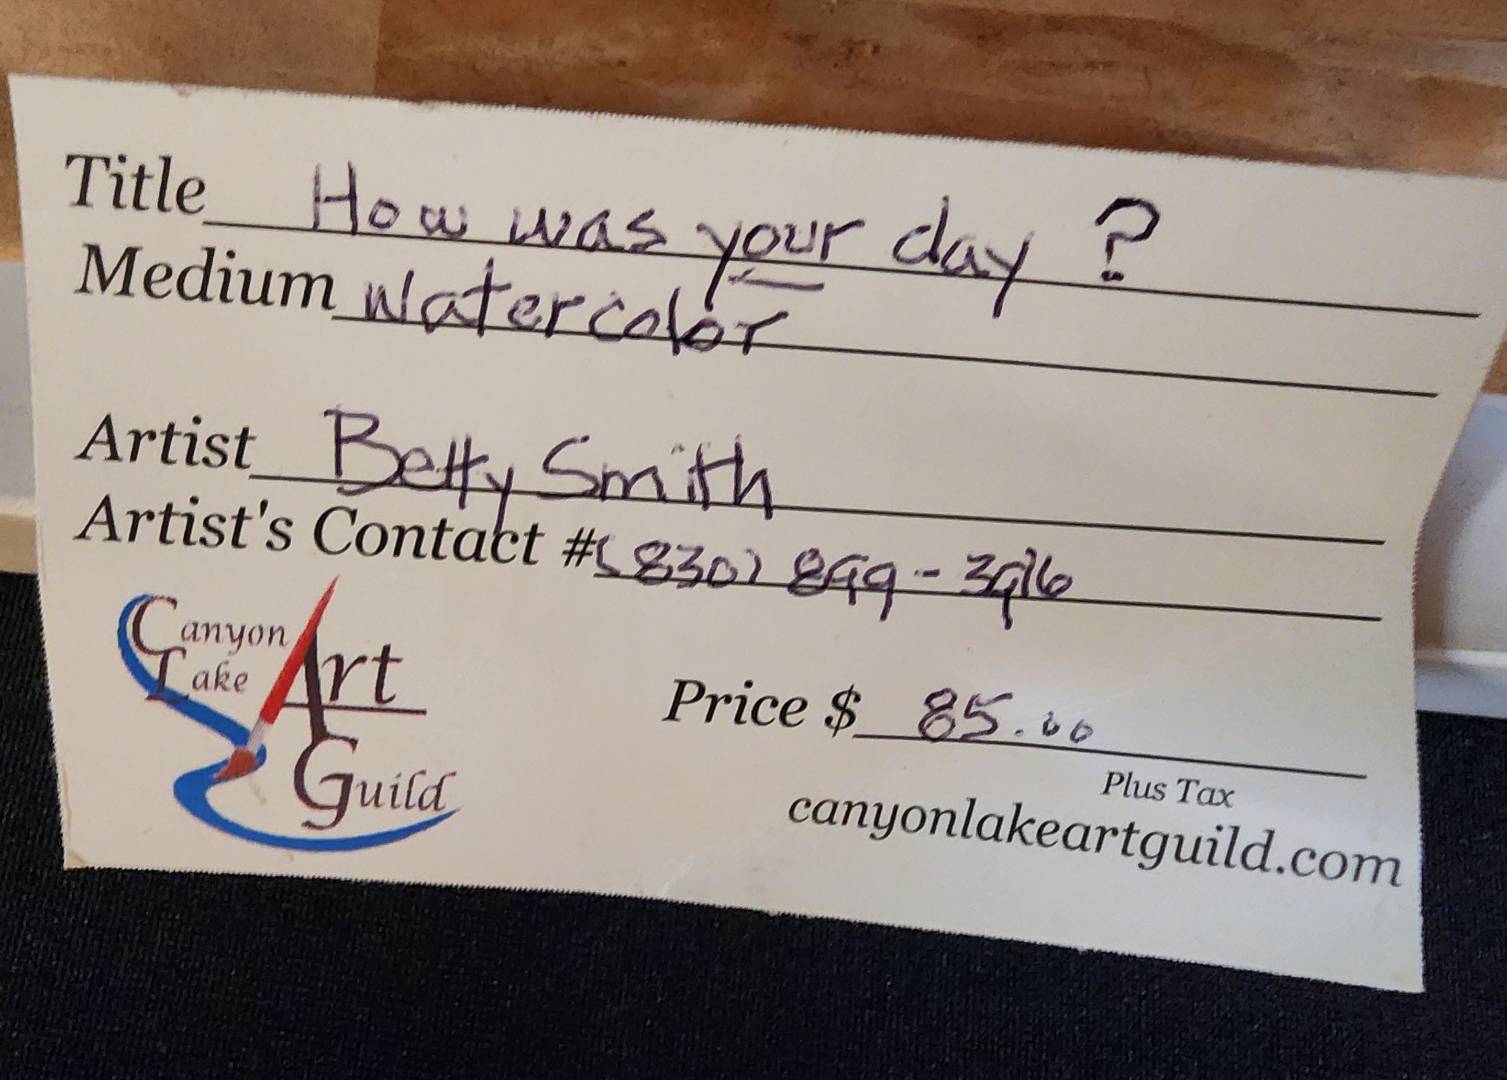 Title How was your day ?
Medium Watercolor
Artist Betty Smith
Artist's Contact # (830) 899-3976
Canyon
Lake
Art
Guild
Price $ 85.00
Plus Tax
canyonlakeartguild.com